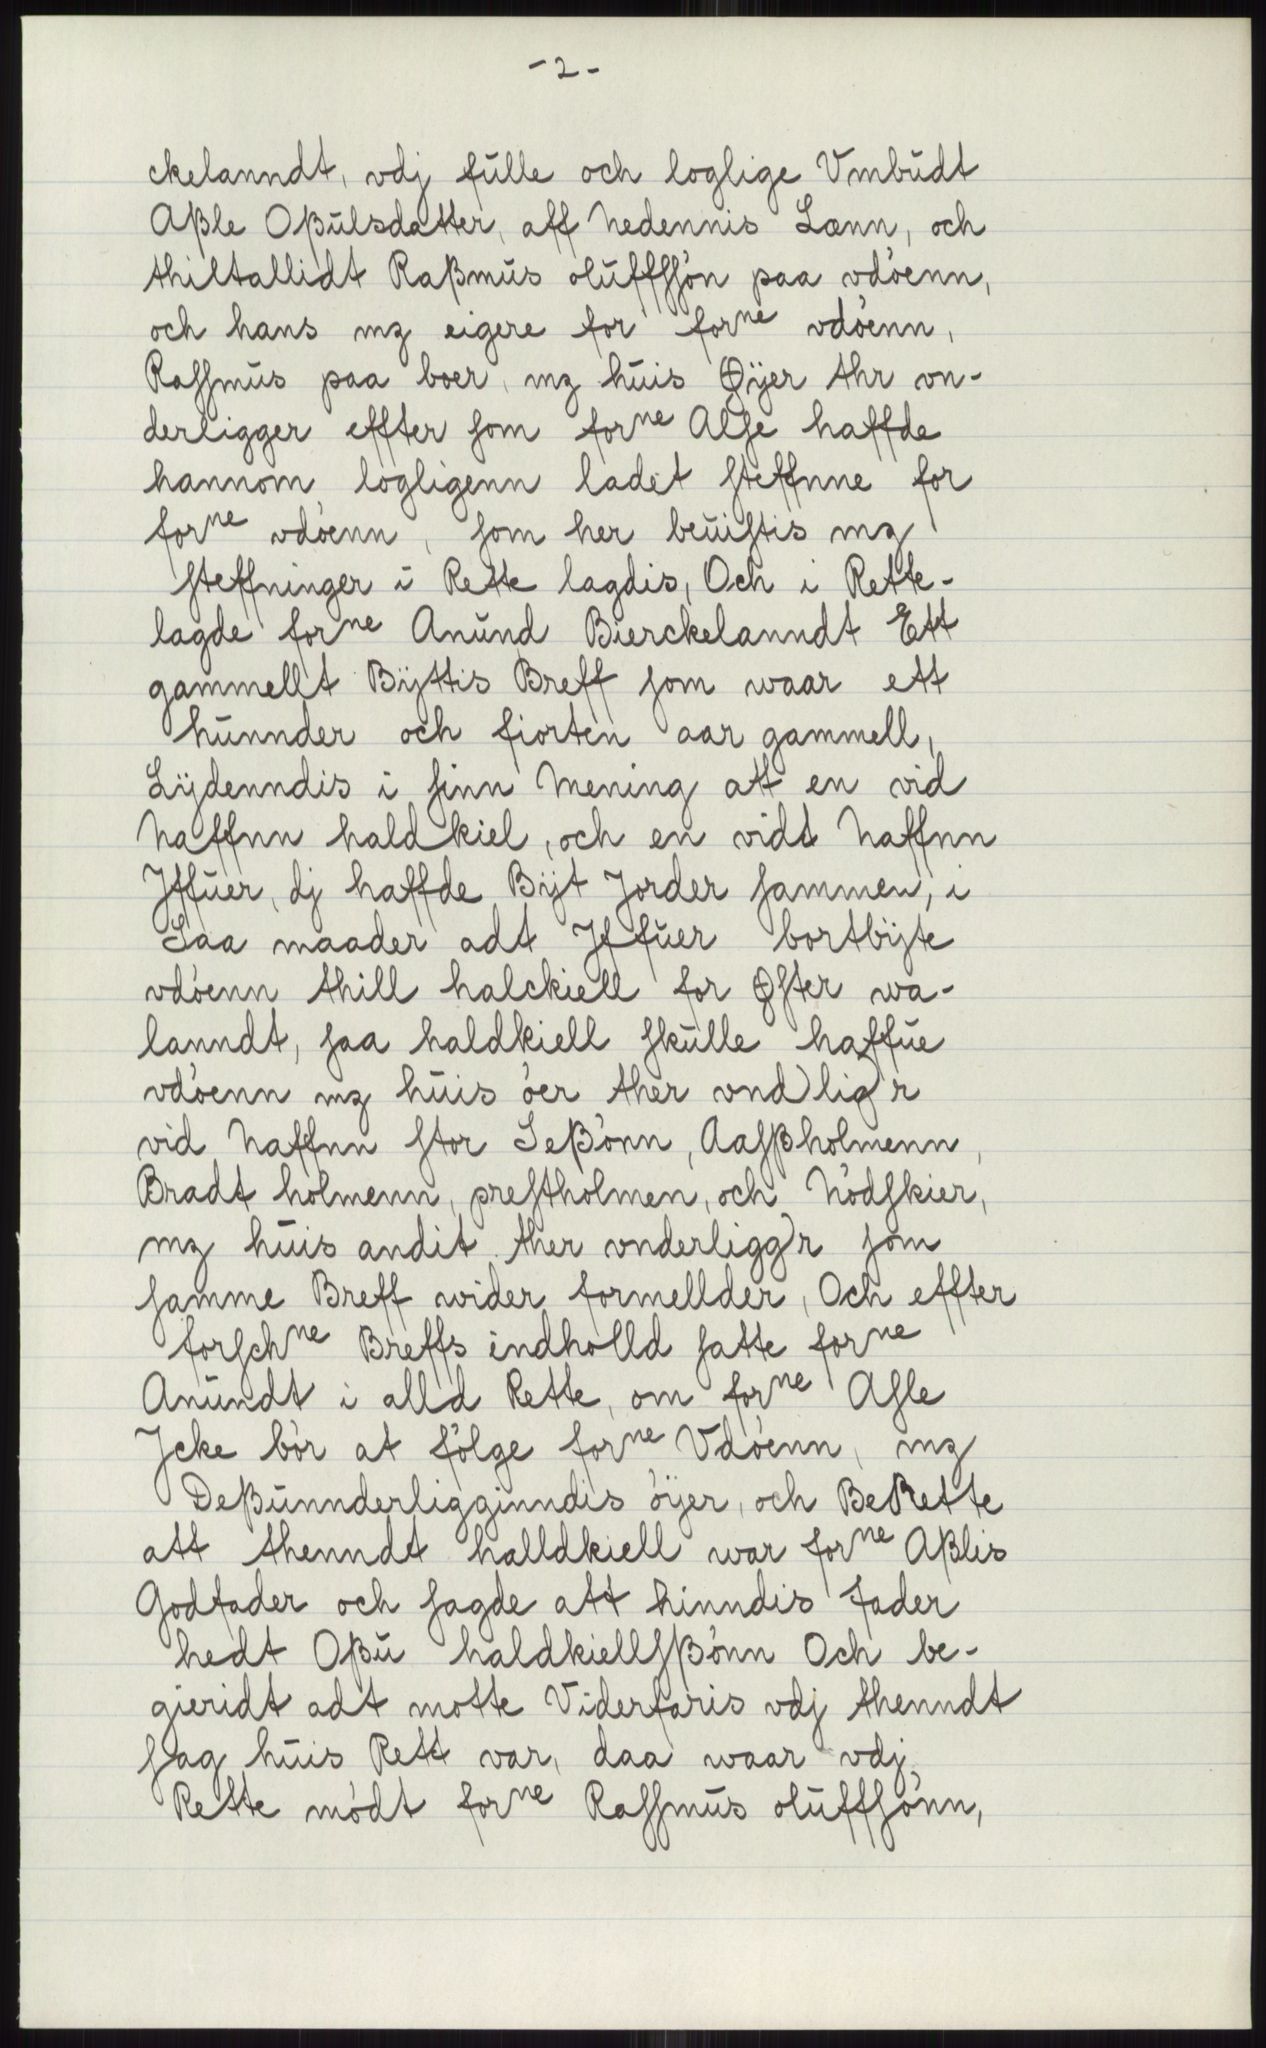 - 2 -
ckelanndt, vdj fŭlle och loglige Vmbŭdt
Aßle Oßŭlsdatter, aff Nedennis Lænn, och
thiltallidt Raßmŭs olŭffſſön paa vdöenn,
och hans mz eigere for forⁿᵉ vdöenn,
Raſſmŭs paa boer, mz hŭis Øÿer thr vn-
derligger effter ſom forⁿᵉ Alſe haffde
hannom logligenn ladet ſteffnne for
forⁿᵉ vdöenn, ſom her beŭiſtis mz
ſteffninger i Rette lagdis, Och i Rette-
lagde forⁿᵉ Anŭnd Bierckelanndt Ett
gammellt Bÿttis Breff ſom waar ett
hŭnnder och fiorten aar gammell,
Lÿdenndis i ſinn Mening att en vid
Naffnn haldkiel, och en vidt Naffnn
Jffŭer, dj haffde Bÿt Jorder ſammen, i
Saa maader adt Jffŭer bortbÿte
vdöenn thill halckiell for Øſter wa-
lanndt, ſaa haldkiell ſkŭlle haffŭe
vdöenn mz hŭis öer ther vnd)lig)r
vid Naffnn ſtor Seßönn, Aaſßholmenn,
Bradt holmenn, preſtholmen, och Nödſkier,
mz hŭis andit ther vnderligg)r ſom
ſamme Breff wider formellder, Och effter
forſchⁿᵉ Breffs indholld ſatte forⁿᵉ
Anŭndt i alld Rette, om forⁿᵉ Aſle
Jcke bör at fölge forⁿᵉ Vdöenn, mz
Deßŭnnderligginndis öÿer, och BeRette
att thenndt halldkiell war forⁿᵉ Aßlis
Godfader och ſagde att hinndis fader
hedt Oßŭ haldkiellſßönn Och be-
gieridt adt motte Viderfaris vdj thenndt
ſag hŭis Rett var, daa waar vdj
Rette mödt forⁿᵉ Raſſmŭs olŭffſönn,